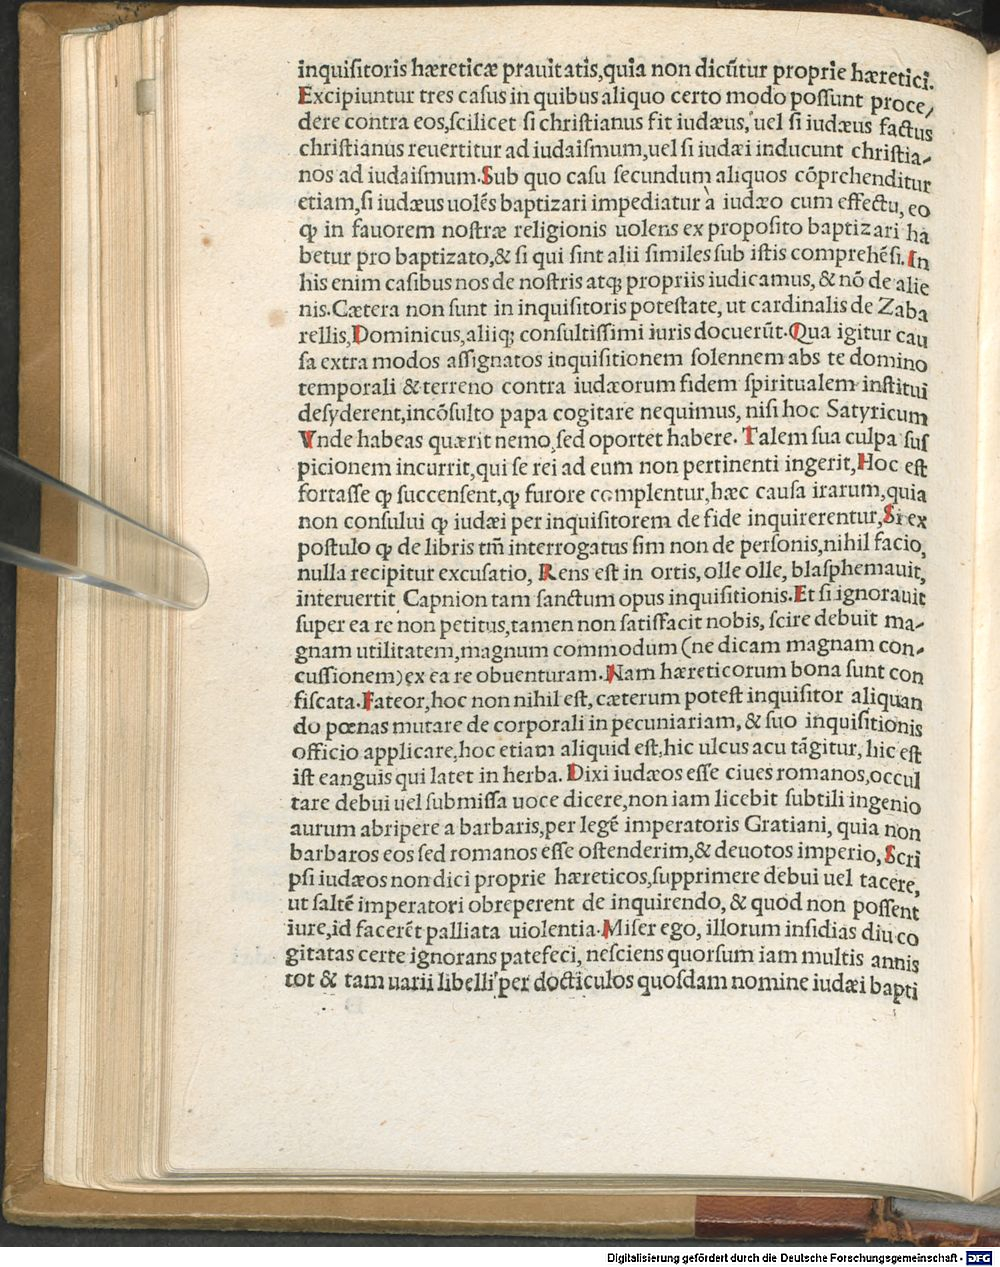 inquiſitoris hæreticæ prauitatis,quia non dicũtur proprie hæretici.
Excipiuntur tres caſus in quibus aliquo certo modo poſſunt proce/
dere contra eos,ſcilicet ſi chriſtianus fit iudæus, uel ſi iudæus factus
chriſtianus reuertitur ad iudaiſmum,uel ſi iudæi inducunt chriſtia-
nos ad iudaiſmum.Sub quo caſu ſecundum aliquos cõprehenditur
etiam,ſi iudæus uolẽs baptizari impediatur à iudæo cum effectu, eo
ꝙ in fauorem noſtræ religionis uolens ex propoſito baptizari ha
betur pro baptizato,& ſi qui ſint alii ſimiles ſub iſtis comprehẽſi.In
his enim caſibus nos de noſtris atqꝫ propriis iudicamus, & nõ de alie
nis.Cætera non ſunt in inquiſitoris poteſtate, ut cardinalis de Zaba
rellis,Dominicus,aliiqꝫ conſultiſſimi iuris docuerũt.Qua igitur cau
ſa extra modos aſſignatos inquiſitionem ſolennem abs te domino
temporali & terreno contra iudæorum fidem ſpiritualem inſtitui
deſyderent,incõſulto papa cogitare nequimus, niſi hoc Satyricum
Vnde habeas quærit nemo,ſed oportet habere. Talem ſua culpa ſuſ
picionem incurrit,qui ſe rei ad eum non pertinenti ingerit,Hoc eſt
fortaſſe ꝙ ſuccenſent,ꝙ furore complentur,hæc cauſa irarum,quia
non conſului ꝙ iudæi per inquiſitorem de fide inquirerentur,Si ex
poſtulo ꝙ de libris tm̃ interrogatus ſim non de perſonis,nihil facio,
nulla recipitur excuſatio, Rens eſt in ortis, olle olle, blaſphemauit,
interuertit Capnion tam ſanctum opus inquiſitionis.Et ſi ignorauit
ſuper ea re non petitus,tamen non ſatiſfacit nobis, ſcire debuit ma-
gnam utilitatem,magnum commodum (ne dicam magnam con-
cuſſionem) ex ea re obuenturam.Nam hæreticorum bona ſunt con
fiſcata.Fateor,hoc non nihil eſt, cæterum poteſt inquiſitor aliquan
do pœnas mutare de corporali in pecuniariam, & ſuo inquiſitionis
officio applicare,hoc etiam aliquid eſt,hic ulcus acu tãgitur, hic eſt
iſt eanguis qui latet in herba. Dixi iudæos eſſe ciues romanos,occul
tare debui uel ſubmiſſa uoce dicere,non iam licebit ſubtili ingenio
aurum abripere a barbaris,per legẽ imperatoris Gratiani, quia non
barbaros eos ſed romanos eſſe oſtenderim,& deuotos imperio,Scri
pſi iudæos non dici proprie hæreticos,ſupprimere debui uel tacere,
ut ſaltẽ imperatori obreperent de inquirendo, & quod non poſſent
iure,id facerẽt palliata uiolentia.Miſer ego, illorum inſidias diu co
gitatas certe ignorans patefeci, neſciens quorſum iam multis annis
tot & tam uarii libelli per docticulos quoſdam nomine iudæi bapti
Digitalisierung gefördert durch die Deutsche Forschungsgemeinschaft - DFG